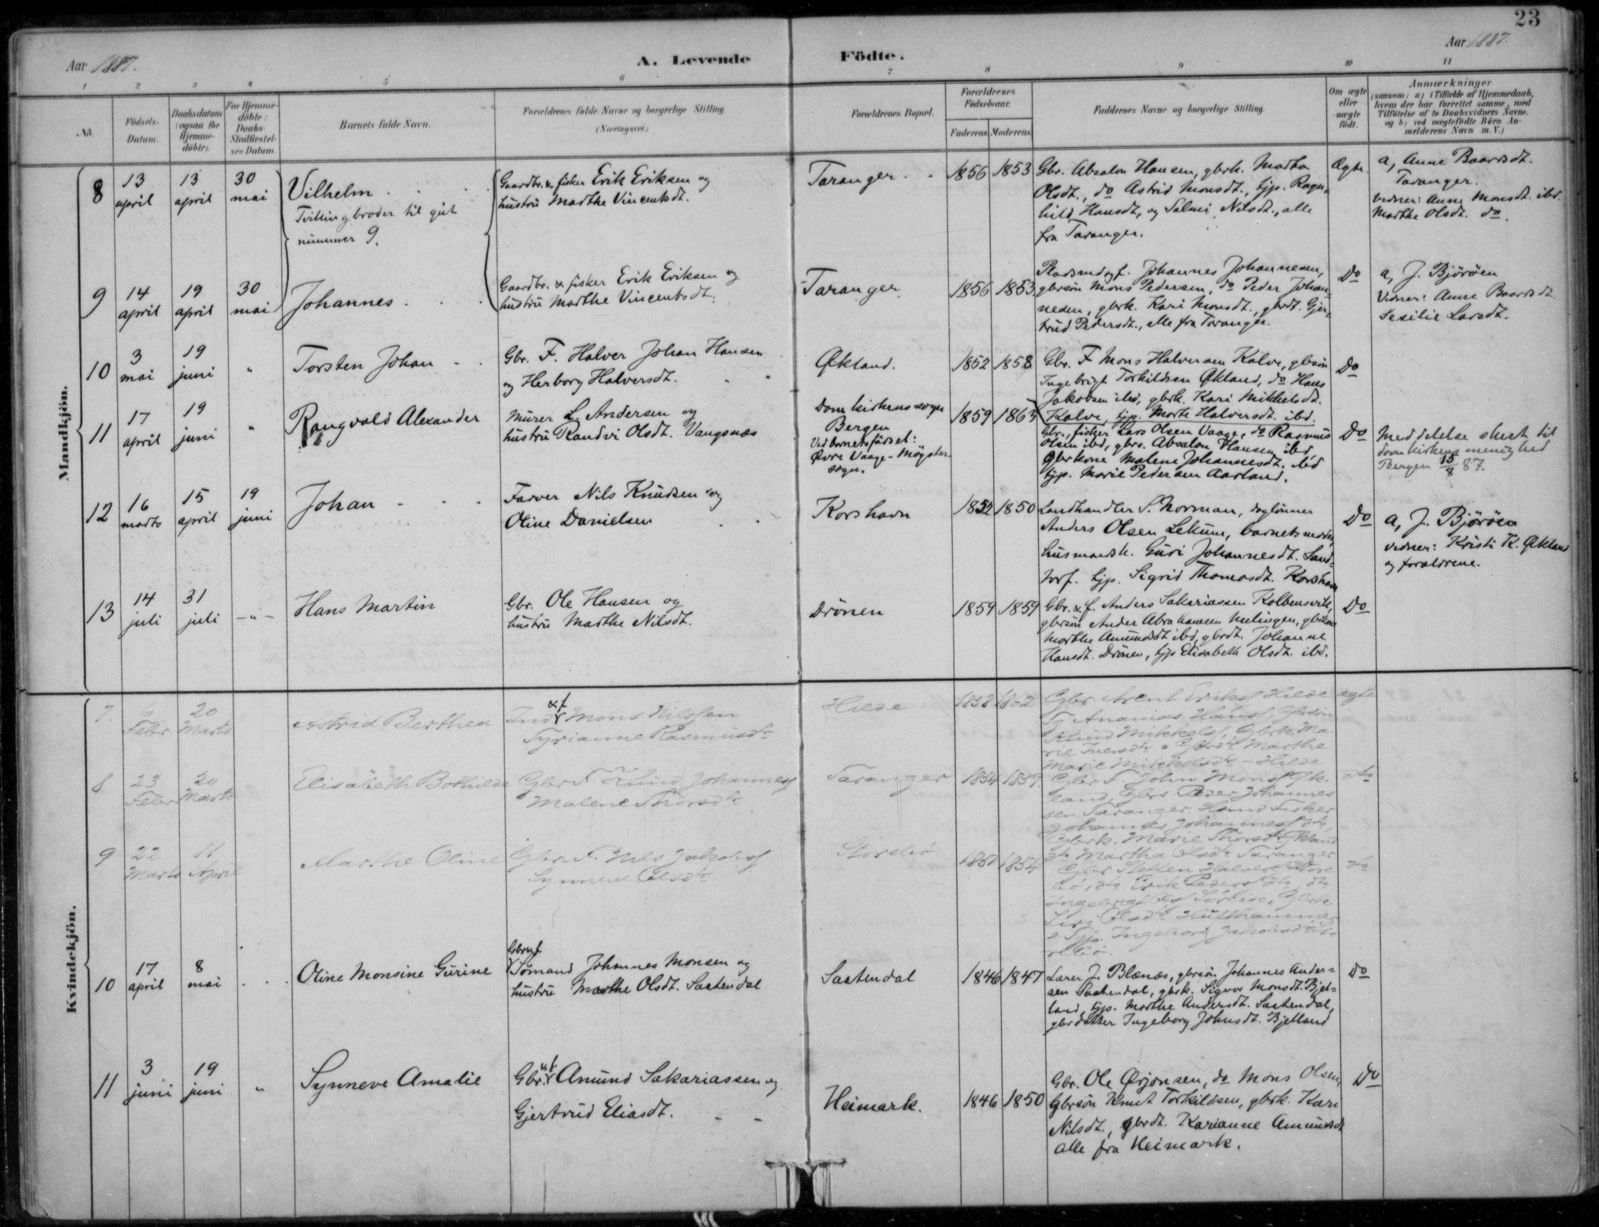 23
Aar 1887.
A. Levende Födte.
Aar 1887.
1 2 3 4 5 6 7 8 9 10 11
No.
Födsels-Datum.
Daabsdatum (ogsaa for Hjemme-döbte).
For Hjemme-döbte: Daabs-Stadfæstel-ses Datum
Barnets fulde Navn.
Forældrenes fulde Navne og borgerlige Stilling.
(Næringsvei.)
Forældrenes Bopæl.
Forældrenes Födselsaar.
Faderens. Moderens.
Faddernes Navne og borgerlige Stilling.
Om ægte eller uægte födt.
Anmærkninger
(saasom: a) i Tilfælde af Hjemmedaab, hvem der har forrettet samme, med Tilföielse af to Daabsvidners Navne, og b) ved uægtefödte Börn An-melderens Navn m. V.)
Mandkjön.
8 13 april 13 april 30 mai
Vilhelm
Tvillingbroder til gut
nummer 9.
Gaardbr. & fisker Erik Eriksen og
hustru Marthe Vincentsdt.
Taranger 1856 1853
Gbr. Absalon Hansen, gbrk. Martha
Olsdt., do Astrid Monsdt., tjp. Ragn-
hild Hansdt, og Salmi Nilsdt., alle
fra Taranger.
Ægte
a, Anne Baardsdt.
Taranger.
vidner: Anne Monsdt. ibd.
Marthe Olsdt. do.
9 14 april 19 april 30 mai
Johannes
Gaardbr. & fisker Erik Eriksen og
hustru Marthe Vincentsdt.
Taranger 1856 1853
Johannes Johannesen,
gbrsön Mons Pedersen, do Peder Johan-
nesen, gbrk. Kari Monsdt., gbrdt. Gjer-
trud Pedersdt., alle fra Taranger.
Do
a, J. Björöen
Vidner: Anne Baardsdt
Sesilie Larsdt.
10 3 mai 19 juni "
Torsten Johan
Gbr. F. Halvor Johan Hansen
og Herborg Halversdt.
Økland. 1852 1858
Gbr. F Mons Halversen Kalve, gbrsön
Ingebrigt Torkildsen Økland, do Hans
Jakobsen ibd, gbrk. Kari Mikkelsdt.
Kalve, tjp. Marte Halversdt. ibd.
Do
11 17 april 19 juni "
Rangvald Alexander
Murer L. Andersen og
hustru Randvi Olsdt. Vangsnæs
Domkirkens sogn
Bergen
Ved barnets födsel:
Øvre Vaage - Møgster
sogn.
1859 1863
Gbr. fisker Lars Olsen Vaage, do Rasmus
Olsen ibd, gbrs. Absalon Hansen ibd,
gbrkone Malene Johannesdt. ibd
tjp. Marie Pedersen Aarland.
Do
Meddelelse sknet til
domkirkens menighed
Bergen 15/8 87.
12 16 marts 15 april 19 juni
Johan
Farver Nils Knudsen og
Oline Danielsen
Korshavn 1852 1850
Landhandler S. Norman, daglönner
Anders Olsen Lekven, barnets moder,
husmandsk. Guri Johannesdt. Sand-
torf. tjp. Sigrid Thomasdt. Korshavn
Do
a, J. Björöen
vidner: Kristi K. Økland
og forældrene.
13 14 juli 31 juli - " -
Hans Martin
Gbr. Ole Hansen og
hustru Marthe Nilsdt.
Drönen 1859 1859
Gbr. & f. Anders Sakariassen Kolbensvik,
gbrsön Ander Abrahamsen Melingen, gbrkone
Marthe Amundsdt ibd, gbrdt. Johanne
Hansdt. Drönen, tjp Elisabeth Olsdt. ibd.
Do
Kvindekjön.
7 6 Febr 20 Marts
Astrid Berthea
Indr & f Mons Nilssen
Syrianne Rasmusdtr
Hilde 1852 1862
Gbr Arent Eriks Hilde
Knud Mikkels, Gbrk Ma-
rie Iversdtr Gbrdtr Marthe
Marie Mikkelsdtr - Hilde
ægte
8 23 Febr 20 Marts
Elisabeth Bothilde
Gbr F. Knud Johannes
Malene Thorsdtr
Taranger 1854 1859
Gbr F. John Mons Øk-
land, Gbrs Peder Johannes-
sen Taranger, Fisker
Johannes Johannes do
Gbrk. Marie Thorsdtr
Martha Olsdtr Taranger
do
9 22 Marts 11 April
Marthe Oline
Gbr. F. Nils Jakobs
Synneve Olsdtr
Storebö 1851 1854
Gbr Steffen Halvers Store-
bö, do Erik Peders do do
Ingebrigt Ols Storebö, Gbrk
Siri Olsdtr Hufthammer
Tjp. Ingeborg Jakobsdtr
do
10 17 april 8 mai
Oline Monsine Gurine
Gbr & f
Sömand Johannes Monsen og
hustru Marthe Olsdt. Saatendal
Saatendal 1846 1847
Lærer J. Blænæs, gbrsön Johannes Ander-
sen Saatendal, gbrk. Signor Monsdt. Bjel-
land, tjp. Marthe Andersdt. Saatendal,
gbrdatter Ingeborg Johnsdt. Bjelland
Do
11 3 juni 19 juni "
Synneve Amalie
Gbr. & f Amund Sakariassen og
Gjertrud Eliasdt.
Heimark. 1846 1850
Gbr. Ole Ørjansen, do Mons Olsen,
Gbrsön Knut Torkildsen, gbrk. Kari
Nilsdt., gbrdt. Karianne Amundsdt
alle fra Heimark.
Do